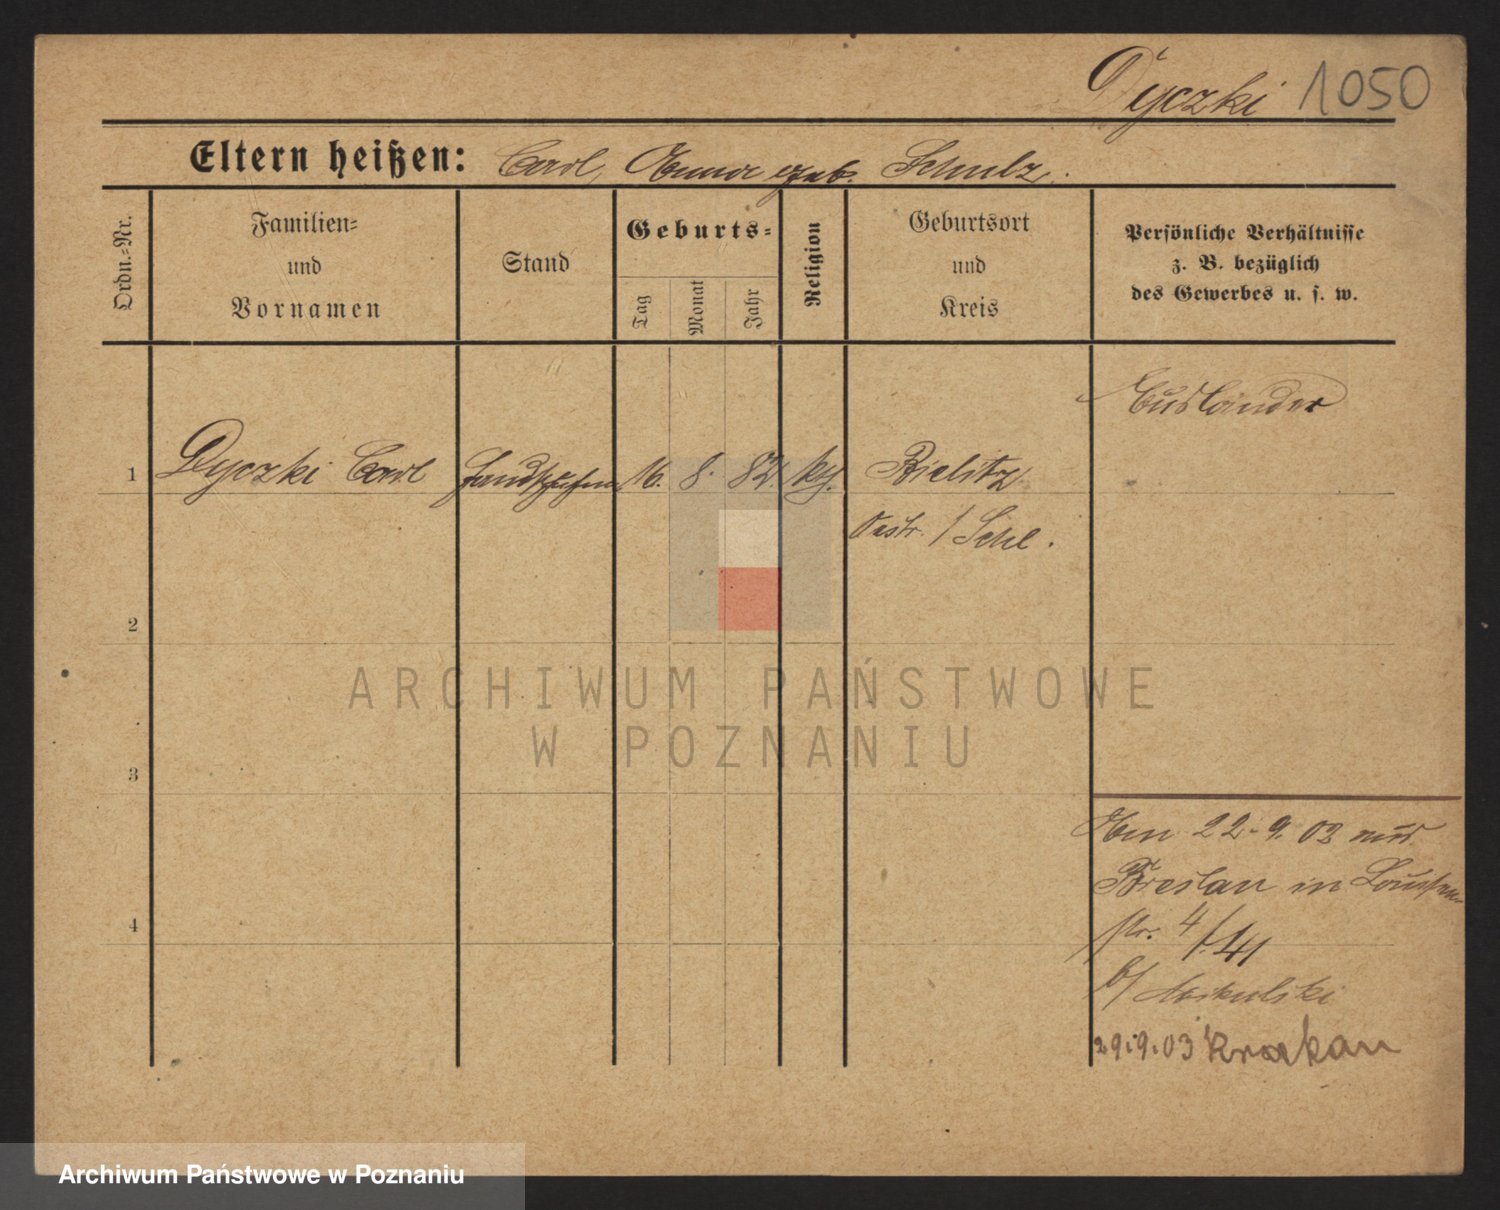 Dyczki 1050
Eltern heißen: Carl, Anna geb. Schulz.
Ordn.-Nr.
Familien-
und
Vornamen
Stand
Geburts-
Tag
Monat
Jahr
Religion
Geburtsort
und
Kreis
Persönliche Verhältnisse
z. B. bezüglich
des Gewerbes u. s. w.
Ausländer
1 Dyczki Carl 16. 8. 82. kth. Bielitz
Oestr. / Schl.
2
ARCHIWUM PAŃSTWOWE
W POZNANIU
3
Am 22. 9. 03 aus
Breslau in Louisen-
4 str. 4/
b/
29.9.03 Krakau
Archiwum Państwowe w Poznaniu